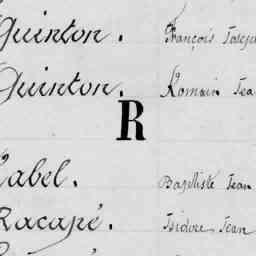 Quinton. François Joseph
Quinton. Romain Jea
R
Rabel. Baptiste Jean
Racapé. Isidore Jean